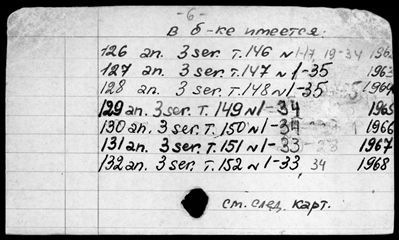 -6-
в б-ке имеется:
126 an. 3 ser. т. 146 N 1-17, 19-34 196
127 an. 3 ser. т. 147 N 1-35 1963
128 an. 3 ser. т. 148 N 1-35 1964
129 an. 3 ser. т. 149 N 1-34 1965
130 an. 3 ser. т. 150 N 1-34 1966
131 an. 3 ser. т. 151 N 1-33 1967
132 an. 3 ser. т. 152 N 1-33, 34 1968
см. след. карт.